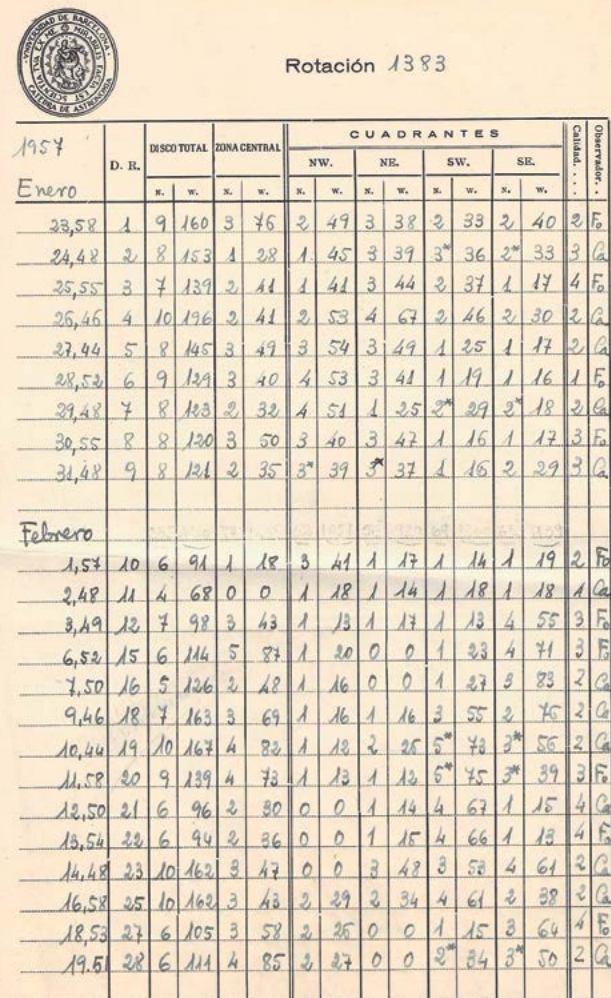 VNIVERSIDAD DE BARCELONA
CATEDRA DE ASTRONOMIA
MIRABILIS FACTA EST SCIENTIA TVA EX ME
Rotación 1383
1957
D. R. DISCO TOTAL ZONA CENTRAL CUADRANTES Calidad. . . . Observador. .
NW. NE. SW. SE.
Enero N. W. N. W. N. W. N. W. N. W. N. W.
23,58 1 9 160 3 76 2 49 3 38 2 33 2 40 2 Fo
24,48 2 8 153 1 28 1 45 3 39 3* 36 2* 33 3 Ca
25,55 3 7 139 2 41 1 41 3 44 2 37 1 17 4 Fo
26,46 4 10 196 2 41 2 53 4 67 2 46 2 30 2 Ca
27,44 5 8 145 3 49 3 54 3 49 1 25 1 17 2 Ca
28,52 6 9 129 3 40 4 53 3 41 1 19 1 16 1 Fo
29,48 7 8 123 2 32 4 51 1 25 2* 29 2* 18 2 Ca
30,55 8 8 120 3 50 3 40 3 47 1 16 1 17 3 Fo
31,48 9 8 121 2 35 3* 39 3* 37 1 16 2 29 3 Ca
Febrero
1,57 10 6 91 1 18 3 41 1 17 1 14 1 19 2 Fo
2,48 11 4 68 0 0 1 18 1 14 1 18 1 18 1 Ca
3,49 12 7 98 3 43 1 13 1 17 1 13 4 55 3 Fo
6,52 15 6 114 5 87 1 20 0 0 1 23 4 71 3 Fo
7,50 16 5 126 2 48 1 16 0 0 1 27 3 83 2 Ca
9,46 18 7 163 3 69 1 16 1 16 3 55 2 76 2 Ca
10,44 19 10 167 4 82 1 12 2 26 5* 73 3* 56 2 Ca
11.58 20 9 139 4 73 1 13 1 12 5* 75 3* 39 3 Fo
12,50 21 6 96 2 30 0 0 1 14 4 67 1 15 4 Ca
13,54 22 6 94 2 36 0 0 1 15 4 66 1 13 4 Fo
14,48 23 10 162 3 47 0 0 3 48 3 53 4 61 2 Ca
16,58 25 10 162 3 43 2 29 2 34 4 61 2 38 2 Ca
18,53 27 6 105 3 58 2 26 0 0 1 15 3 64 4 Fo
19.51 28 6 111 4 85 2 27 0 0 2* 34 3* 50 2 Ca